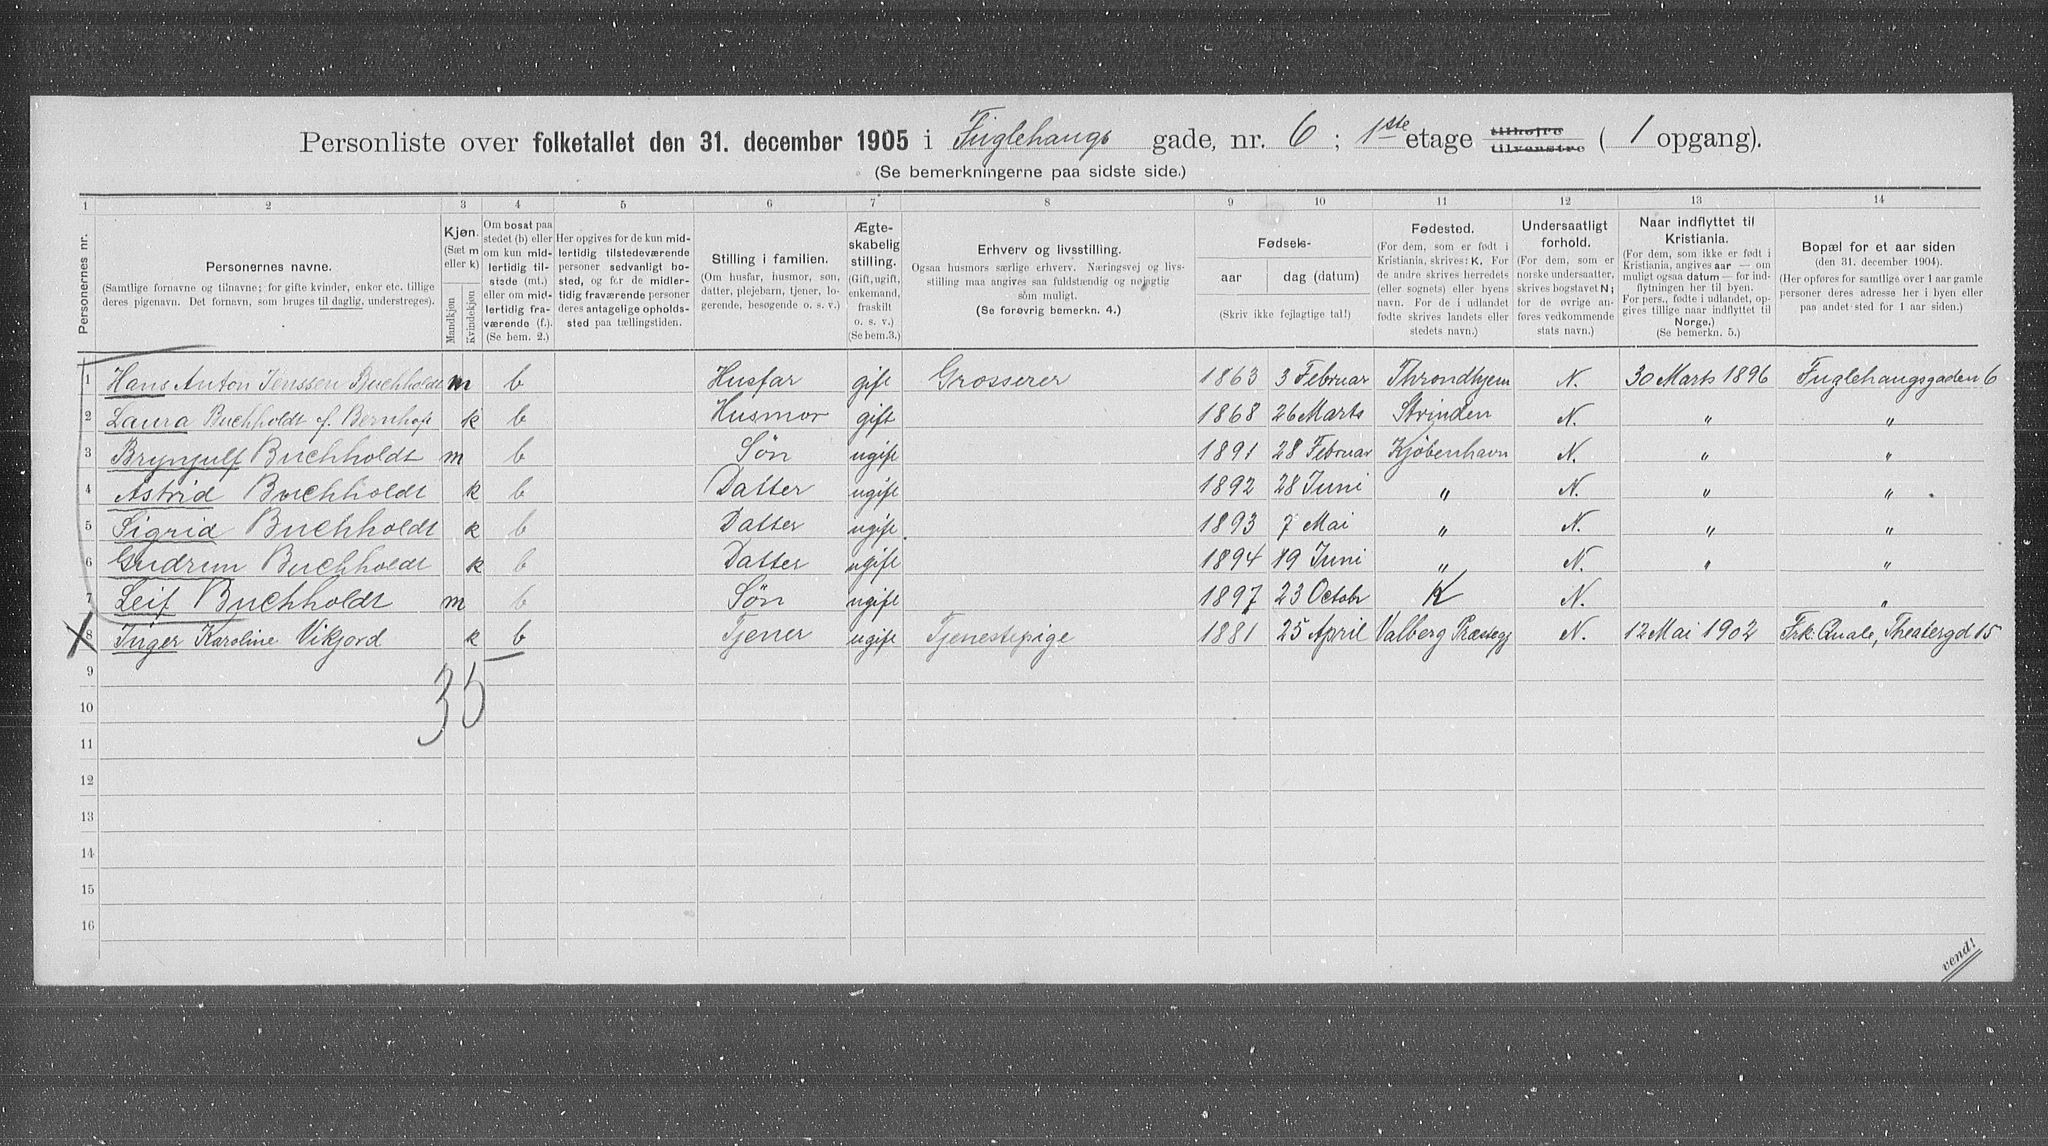 Personliste over folketallet den 31. december 1905 i Fuglehaugs gade, nr. 6 ; 1ste etage tilhøjre tilvenstre ( 1 opgang).
(Se bemerkningerne paa sidste side.)
1 2 3 4 5 6 7 8 9 10 11 12 13 14
Personernes nr.
Personernes navne.
(Samtlige fornavne og tilnavne; for gifte kvinder, enker etc. tillige
deres pigenavn. Det fornavn, som bruges til daglig, understreges).
Kjøn.
(Sæt m
eller k)
Mandkjøn
Kvindekjøn
Om bosat paa
stedet (b) eller
om kun mid-
lertidig til-
stede (mt.)
eller om mid-
lertidig fra-
værende (f.).
(Se bem. 2.)
Her opgives for de kun mid-
lertidig tilstedeværende
personer sedvanligt bo-
sted, og for de midler-
tidig fraværende personer
deres antagelige opholds-
sted paa tællingstiden.
Stilling i familien.
(Om husfar, husmor, søn,
datter, plejebarn, tjener, lo-
gerende, besøgende o. s. v.)
Ægte-
skabelig
stilling.
(Gift, ugift,
enkemand,
fraskilt
o. s. v.)
(Se bem.3.)
Erhverv og livsstilling.
Ogsaa husmors særlige erhverv. Næringsvej og livs-
stilling maa angives saa fuldstændig og nøjagtig
som muligt.
(Se forøvrig bemerkn. 4.)
Fødsels-
aar
dag (datum)
(Skriv ikke fejlagtige tal!)
Fødested.
(For dem, som er født i
Kristiania, skrives: K. For
de andre skrives herredets
(eller sognets) eller byens
navn. For de i udlandet
fødte skrives landets eller
stedets navn.)
Undersaatligt
forhold.
(For dem, som er
norske undersaatter,
skrives bogstavet N;
for de øvrige an-
føres vedkommende
stats navn.)
Naar indflyttet til
Kristiania.
(For dem, som ikke er født i
Kristiania, angives aar — om
muligt ogsaa datum — for ind-
flytningen her til byen.
For pers., fødte i udlandet, op-
gives tillige naar indflyttet til
Norge.)
(Se bemerkn. 5.)
Bopæl for et aar siden
(den 31. december 1904).
(Her opføres for samtlige over 1 aar gamle
personer deres adresse her i byen eller
paa andet sted for 1 aar siden.)
1 Hans Anton Jenssen Buchholdt m b Husfar gift Grosserer 1863 3 Februar Throndhjem N. 30 Marts 1896 Fuglehaugsgaden 6
2 Laura Buchholdt f. Bernhoft k b Husmor gift 1868 26 Marts Strinden N. „ „
3 Brynjulf Buchholdt m b Søn ugift 1891 28 Februar Kjøbenhavn N. „ „
4 Astrid Buchholdt k b Datter ugift 1892 28 Juni „ N. „ „
5 Sigrid Buchholdt k b Datter ugift 1893 7 Mai „ N. „ „
6 Gudrun Buchholdt k b Datter ugift 1894 19 Juni „ N. „ „
7 Leif Buchholdt m b Søn ugift 1897 23 Octobr K N. „
8 Inger Karoline Vikjord k b Tjener ugift Tjenestepige 1881 25 April Valberg Præstegj N. 12 Mai 1902 Frk: Quale, Theatergd 15
9
35
10
11
12
13
14
15
16
vend!